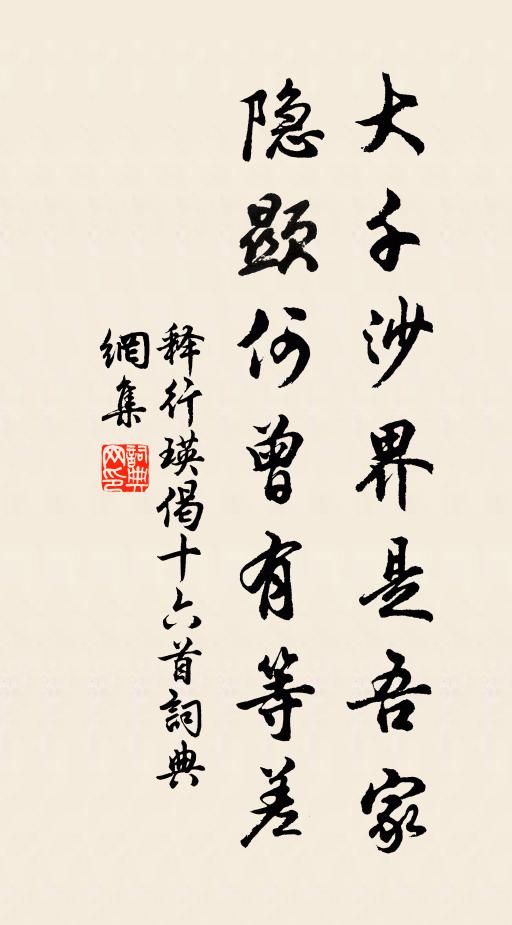 大千沙界是吾家
隐顯何曾有等差
释行瑛偈十六首詞典
網集
詞典
网印